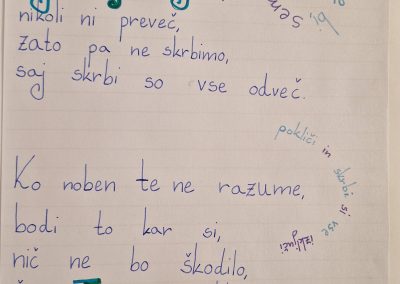 nikoli ni preveč,
zato pa ne skrbimo,
saj skrbi so vse odveč.
Ko noben te ne razume,
bodi to kar si,
nič ne bo škodilo,
pokliči in skrbi si vse izključi